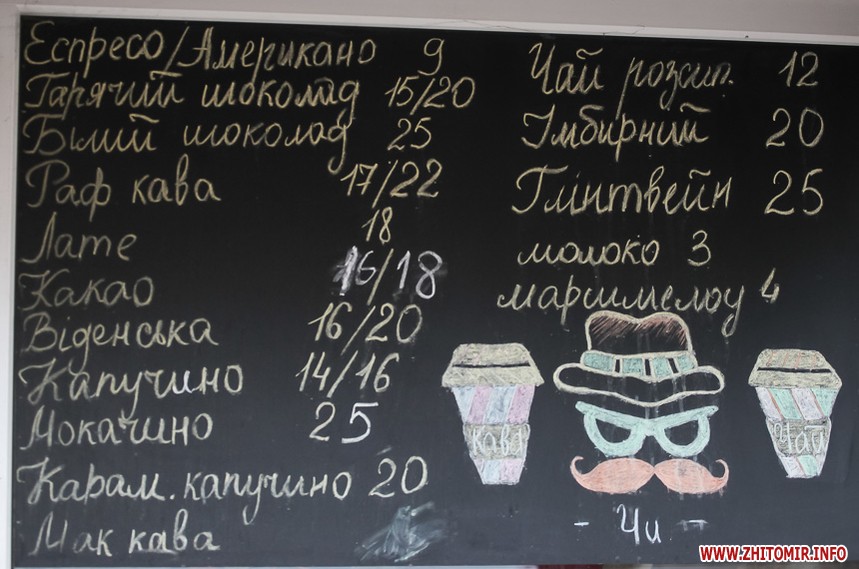 Еспресо/Американо 9
Гарячий шоколад 15/20
Білий шоколад 25
Раф кава 17/22
Лате 18
Какао 16/18
Віденська 16/20
Капучино 14/16
Мокачино 25
Карам. капучино 20
Мак кава
Чай розсип. 12
Імбирний 20
Глінтвейн 25
молоко 3
маршмелоу 4
кава
Чай
- Чи -
WWW.ZHITOMIR.INFO